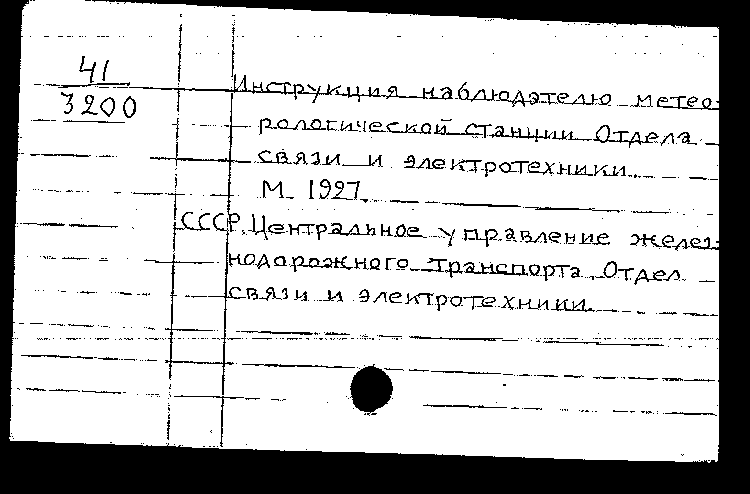 41
3200
Инструкция наблюдателю метео-
рологической станции Отдела
связи и электротехники.
М. 1927.
СССР. Центральное управление желез-
нодорожного транспорта. Отдел
связи и электротехники.